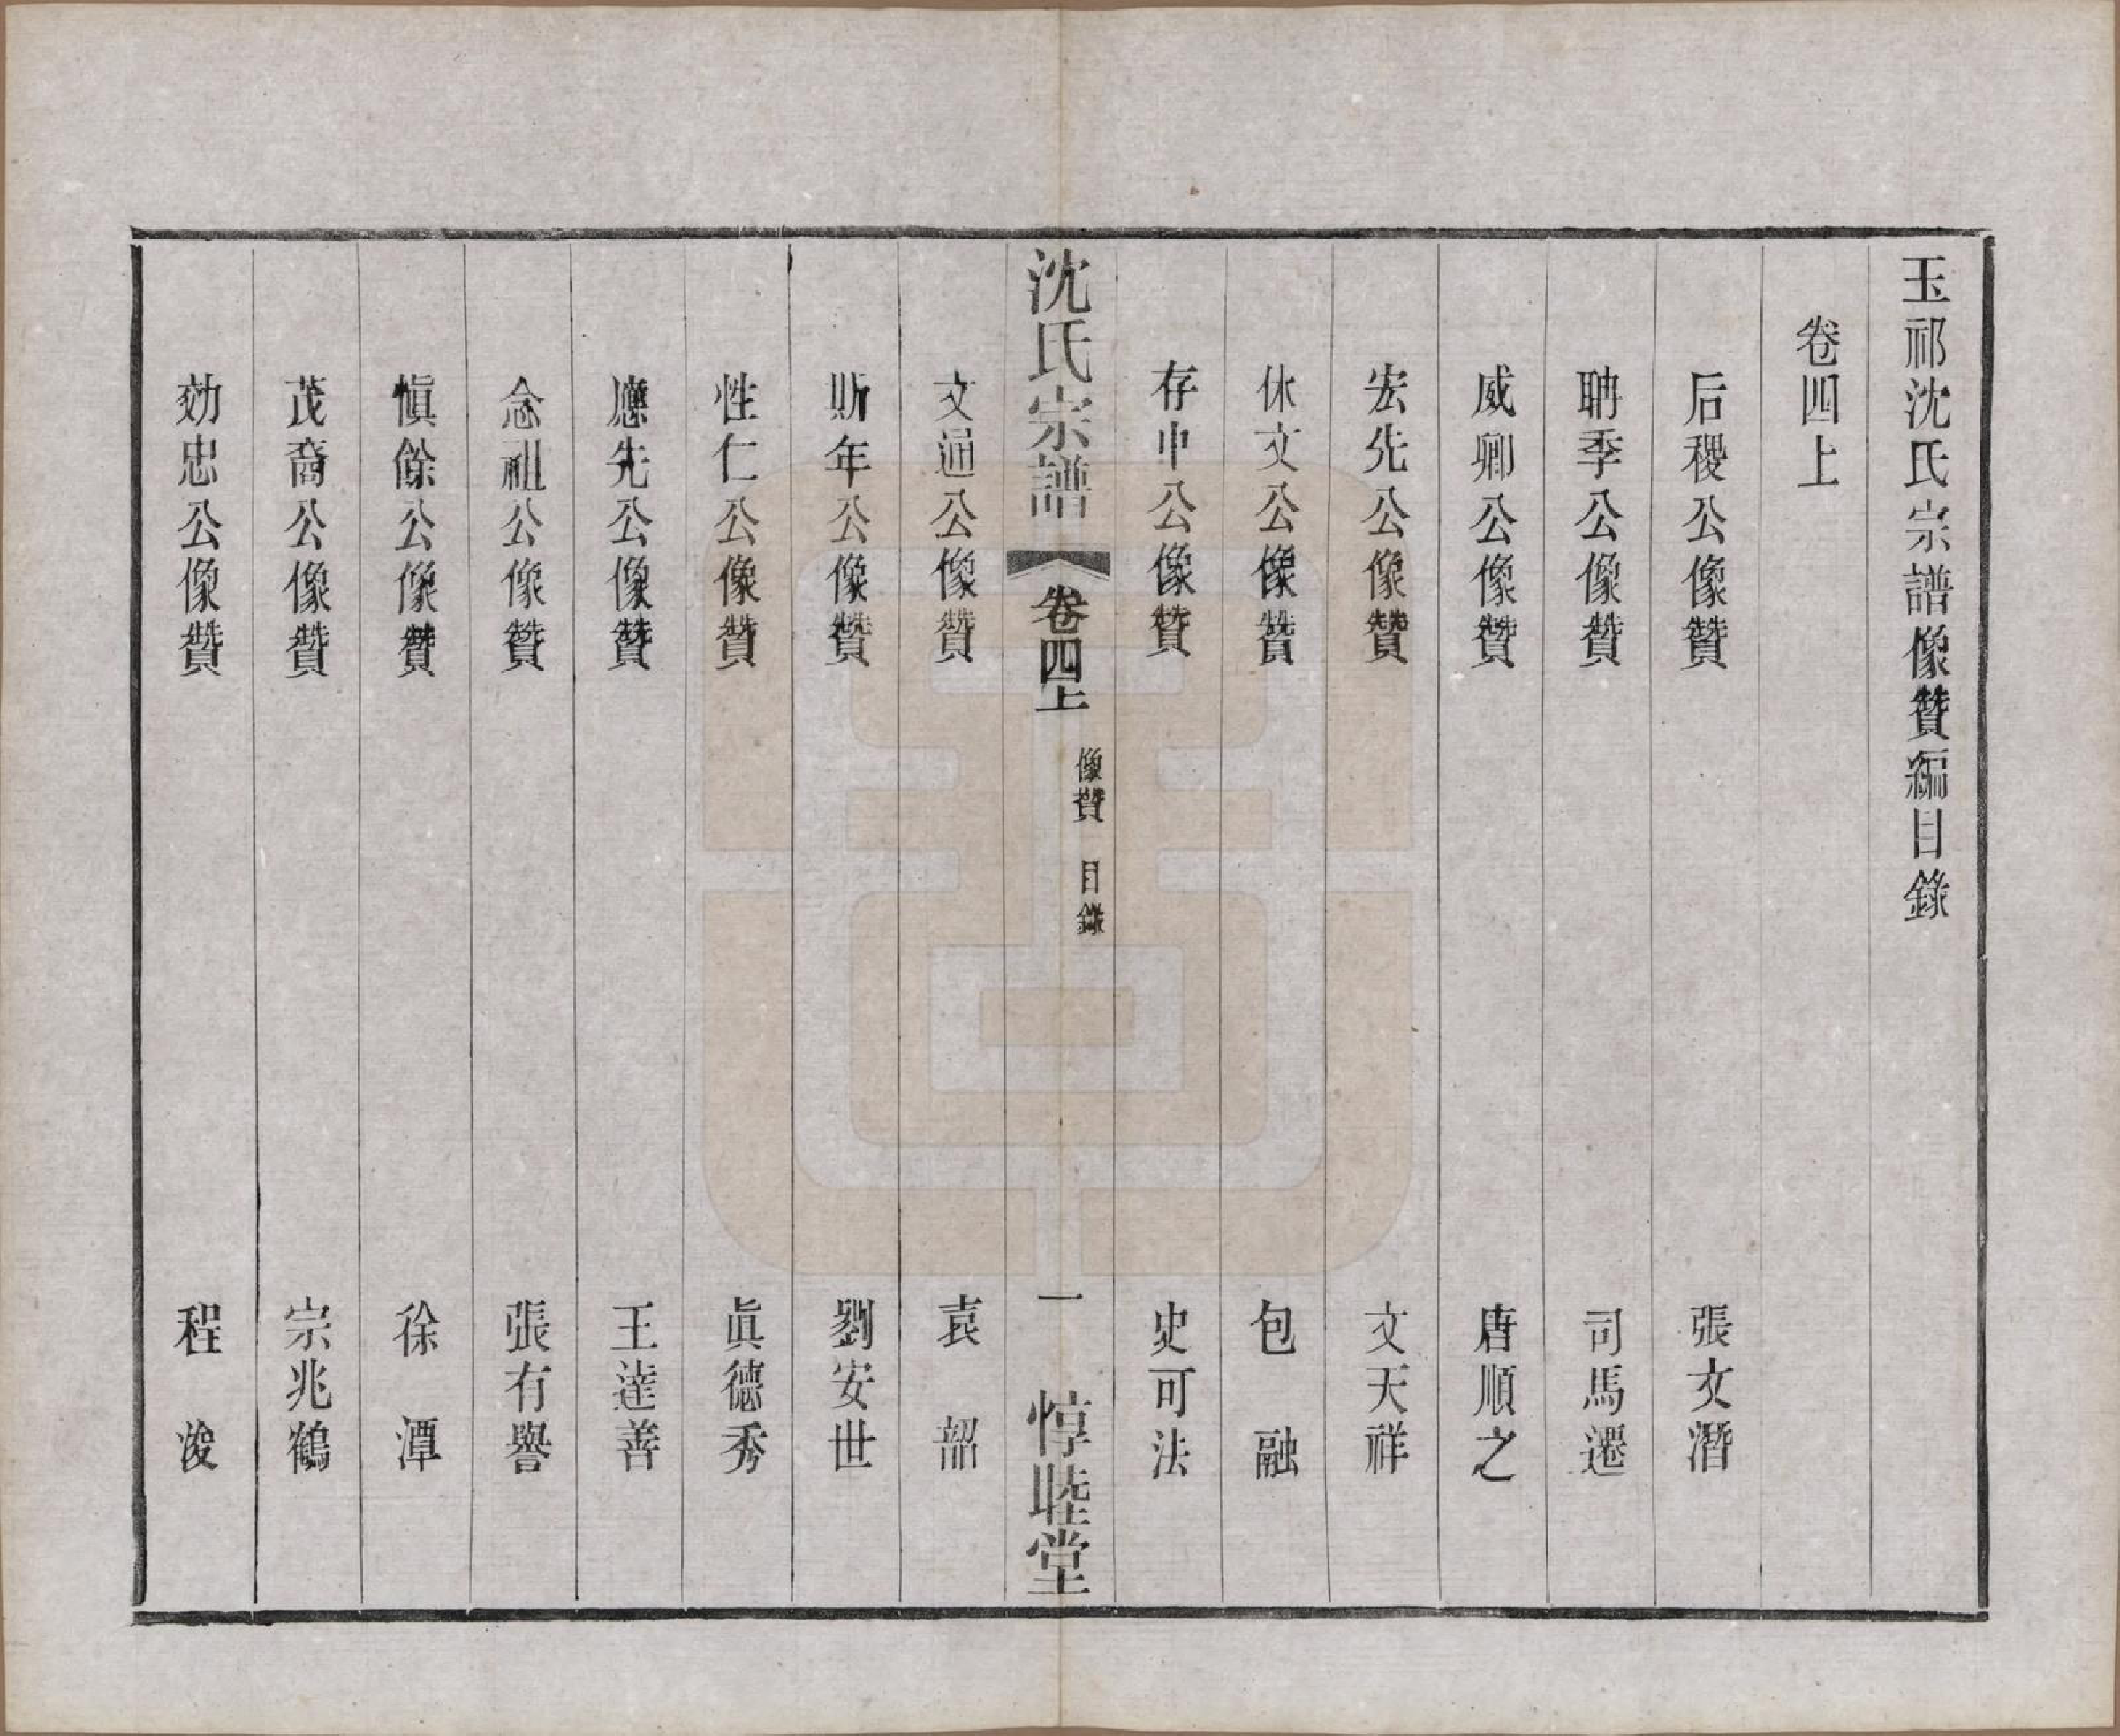 玉祁沈氏宗譜像贊編目錄
卷四上
后稷公像贊　張文潛
聃季公像贊　司馬遷
威卿公像贊　唐順之
宏先公像贊　文天祥
休文公像贊　包融
存中公像贊　史可法
沈氏宗譜　卷四上　像贊　目錄　一　惇睦堂
文通公像贊　袁韶
斯年公像贊　劉安世
性仁公像贊　眞德秀
應先公像贊　王達善
念祖公像贊　張有譽
愼餘公像贊　徐潭
茂裔公像贊　宗兆鶴
効忠公像贊　程浚